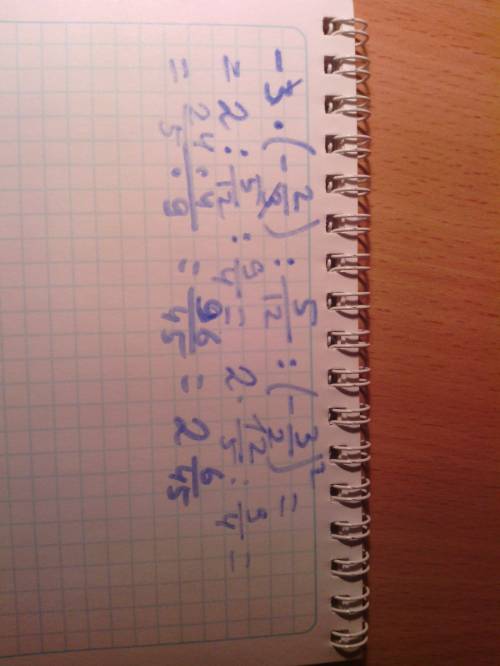 -3 · (-2/3) : 5/12 : (-3/2)² =
= 2 : 5/12 : 9/4 = 2 · 12/5 : 9/4 =
= 24 · 4 / 5 · 9 = 96/45 = 2 6/45